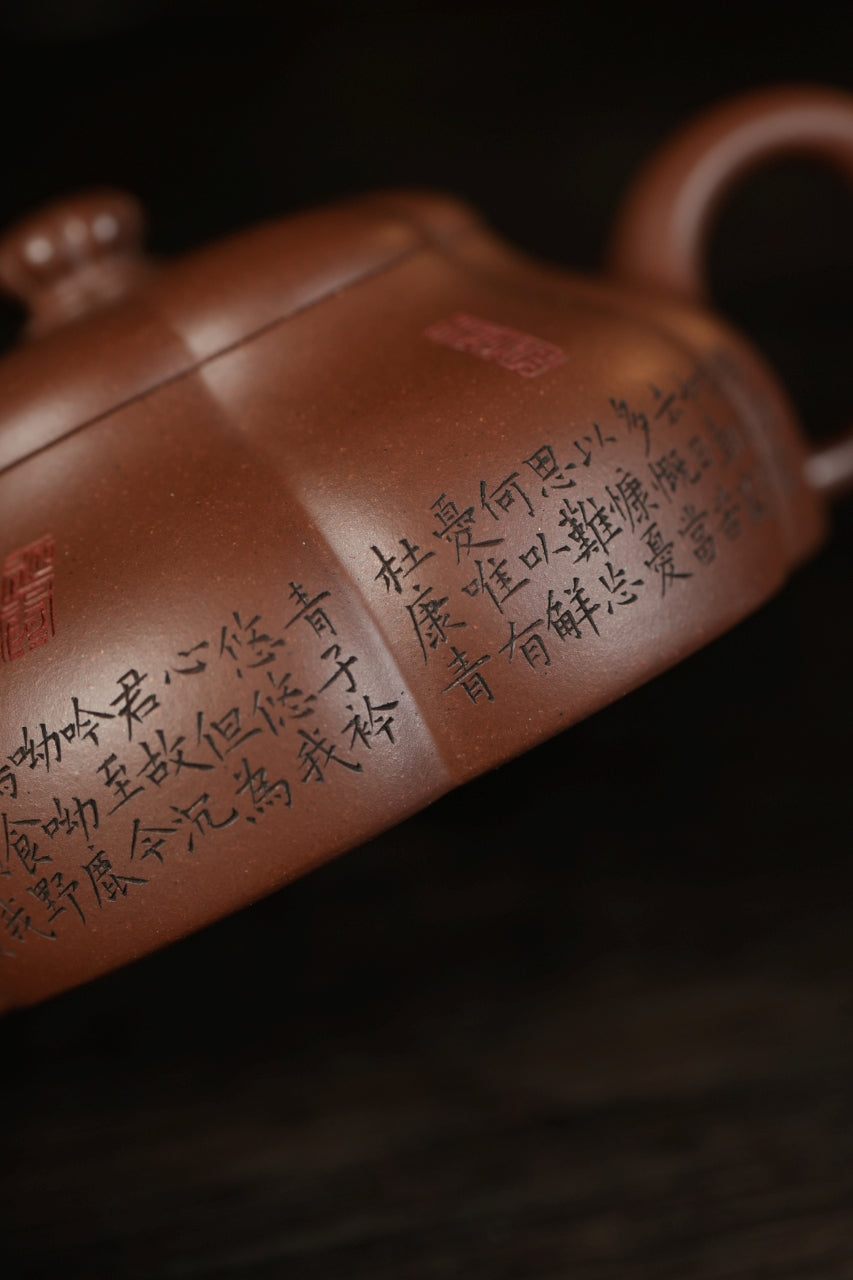 去日苦
多慨當
以慷憂
思難忘
何以解
憂唯有
杜康青
青子衿
悠悠我
心但為
君故沉
吟至今
呦呦鹿
鳴食野
我